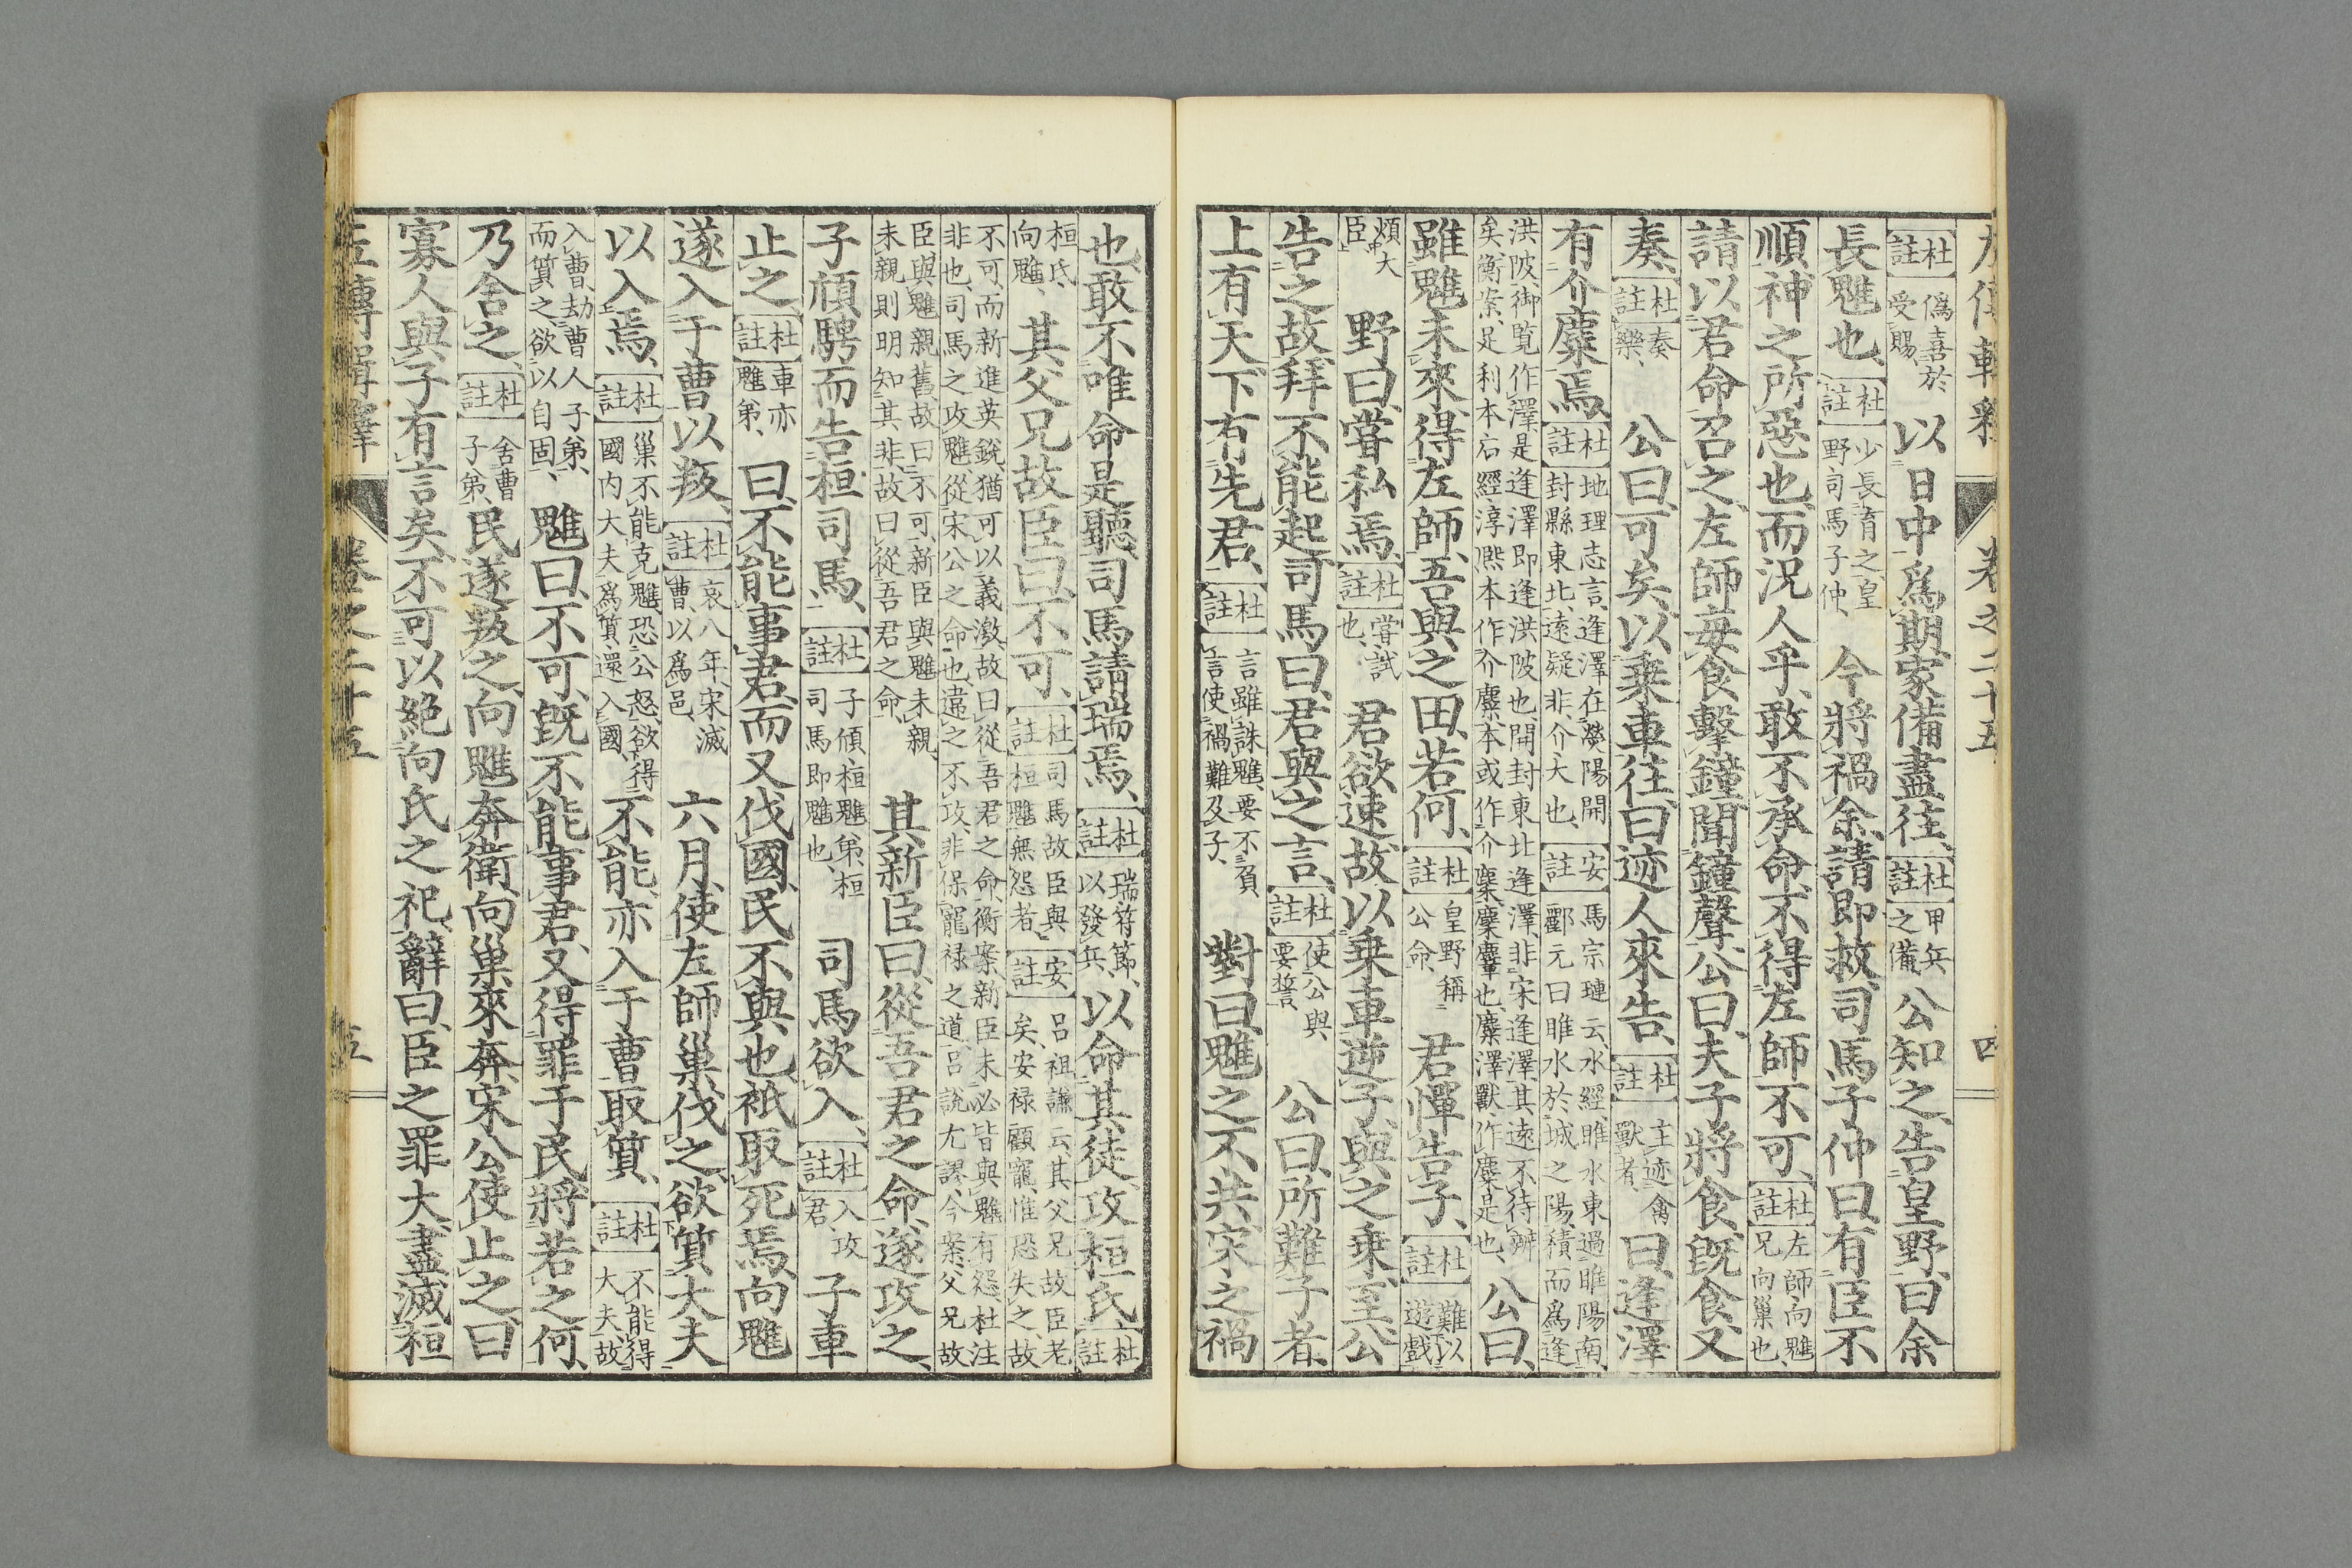 左傳輯釋 卷之二十五 四
杜註 僞喜於受賜、以日中爲期、家備盡往、杜註 甲兵之備、公知之、告皇野、曰、余
長魋也、杜註 少長育之、皇野司馬子仲、今將禍余、請即救、司馬子仲曰、有臣不
順、神之所惡也、而況人乎、敢不承命、不得左師不可、杜註 左師向魋兄向巢也、
請以君命召之、左師每食擊鐘、聞鐘聲、公曰、夫子將食、既食、又
奏、杜註 奏樂、公曰、可矣、以乗車往、曰、迹人來告、杜註 主迹禽獸者、曰、逢澤
有介麋焉、杜註 地理志言、逢澤在滎陽開封縣東北、遠疑非、介大也、安註 馬宗璉云、水經、睢水東過睢陽南、酈元曰睢水於城之陽、積而爲逢
洪陂、御覧作澤、是逢澤即逢洪陂也、開封東北逢澤、非宋逢澤、其遠不待辨矣、衡案、足利本石經淳熙本作介麇、本或作介麋、麇麞也、麋澤獸、作麋是也、公曰、
雖魋未來、得左師、吾與之田、若何、杜註 皇野稱公命、君憚告子、杜註 難以遊戲
煩大臣、野曰、嘗私焉、杜註 嘗、試也、君欲速、故以乗車逆子、與之乗、至、公
告之故、拜不能起、司馬曰、君與之言、杜註 使公與要誓、公曰、所難子者、
上有天、下有先君、杜註 言雖誅魋、要不負言使禍難及子、對曰、魋之不共、宋之禍
也、敢不唯命是聽、司馬請瑞焉、杜註 瑞符節、以發兵、以命其徒攻桓氏、杜註
桓氏向魋、其父兄故臣曰、不可、杜註 司馬故臣與桓魋無怨者、安註 呂祖謙云、其父兄故臣老矣、安禄顧寵、惟恐失之、故
不可、而新進英鋭、猶可以義激、故曰從吾君之命、衡案、新臣未必皆與魋有怨、杜注非也、司馬之攻魋、從宋公之命也、違之不攻、非保寵禄之道、呂説尤謬、今案、父兄故
臣、與魋親舊、故曰不可、新臣與魋未親、未親則明知其非、故曰從吾君之命、其新臣曰、從吾君之命、遂攻之、
子頎騁而告桓司馬、杜註 子頎、桓魋弟、桓司馬即魋也、司馬欲入、杜註 入攻君、子車
止之、杜註 車亦魋弟、曰、不能事君、而又伐國、民不與也、衹取死焉、向魋
遂入于曹以叛、杜註 哀八年、宋滅曹、以爲邑、六月、使左師巢伐之、欲質大夫
以入焉、杜註 巢不能克魋、恐公怒、欲得國内大夫爲質、還入國、不能、亦入于曹取質、杜註 不能得大夫、故
入曹、劫曹人子弟、而質之、欲以自固、魋曰、不可、既不能事君、又得罪于民、將若之何、
乃舍之、杜註 舍曹子弟、民遂叛之、向魋奔衛、向巢來奔、宋公使止之、曰
寡人與子有言矣、不可以絕向氏之祀、辭曰、臣之罪大、盡滅桓
左傳輯釋 卷之二十五 五